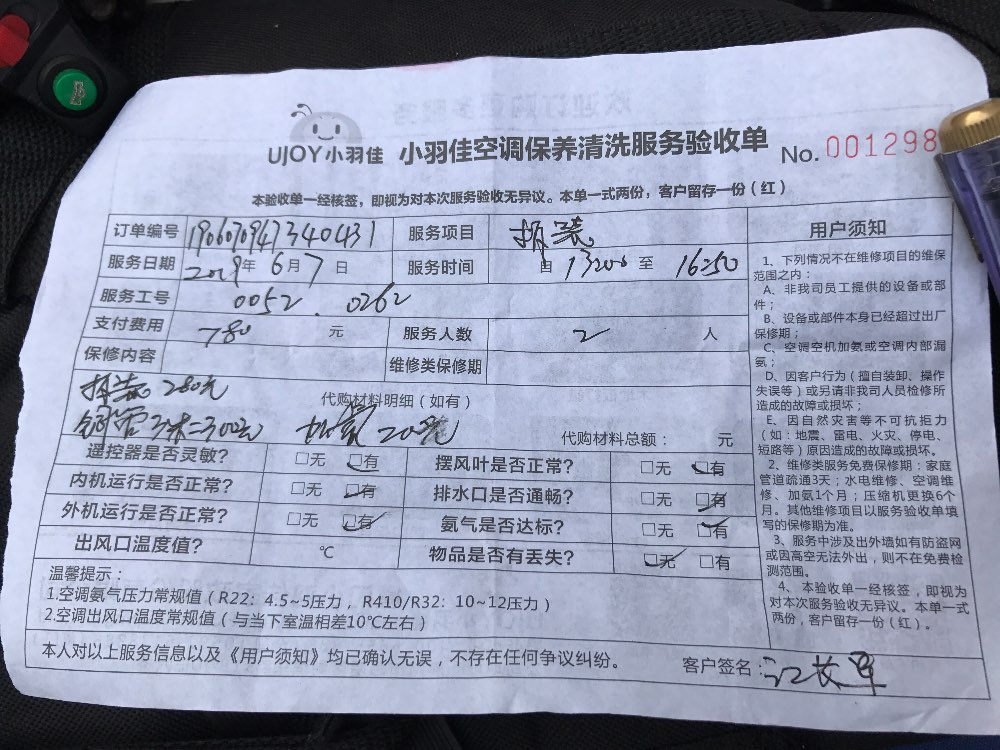 UJOY小羽佳 小羽佳空调保养清洗服务验收单 No. 001298
本验收单一经核签，即视为对本次服务验收无异议。本单一式两份，客户留存一份（红）
订单编号 1906070947340431 服务项目 拆装
服务日期 2019年 6月 7日 服务时间 由 13:00 至 16:50
服务工号 0052 . 0262
支付费用 780 元 服务人数 2 人
保修内容 维修类保修期
拆装 280元 代购材料明细（如有）
铜管3米=300元 加氨 200元 代购材料总额： 元
遥控器是否灵敏？ □无 □有 摆风叶是否正常？ □无 □有
内机运行是否正常？ □无 □有 排水口是否通畅？ □无 □有
外机运行是否正常？ □无 □有 氨气是否达标？ □无 □有
出风口温度值？ ℃ 物品是否有丢失？ □无 □有
温馨提示：
1.空调氨气压力常规值（R22：4.5~5压力，R410/R32：10~12压力）
2.空调出风口温度常规值（与当下室温相差10℃左右）
本人对以上服务信息以及《用户须知》均已确认无误，不存在任何争议纠纷。 客户签名：
用户须知
1、下列情况不在维修项目的维保
范围之内：
A、非我司员工提供的设备或部
件；
B、设备或部件本身已经超过出厂
保修期；
C、空调空机加氨或空调内部漏
氨；
D、因客户行为（擅自装卸、操作
失误等）或另请非我司人员检修所
造成的故障或损坏；
E、因自然灾害等不可抗拒力
（如：地震、雷电、火灾、停电、
短路等）原因造成的故障或损坏。
2、维修类服务免费保修期：家庭
管道疏通3天；水电维修、空调维
修、加氨1个月；压缩机更换6个
月。其他维修项目以服务验收单填
写的保修期为准。
3、服务中涉及出外墙如有防盗网
或因高空无法外出，则不在免费检
测范围。
4、本验收单一经核签，即视为
对本次服务验收无异议。本单一式
两份，客户留存一份（红）。